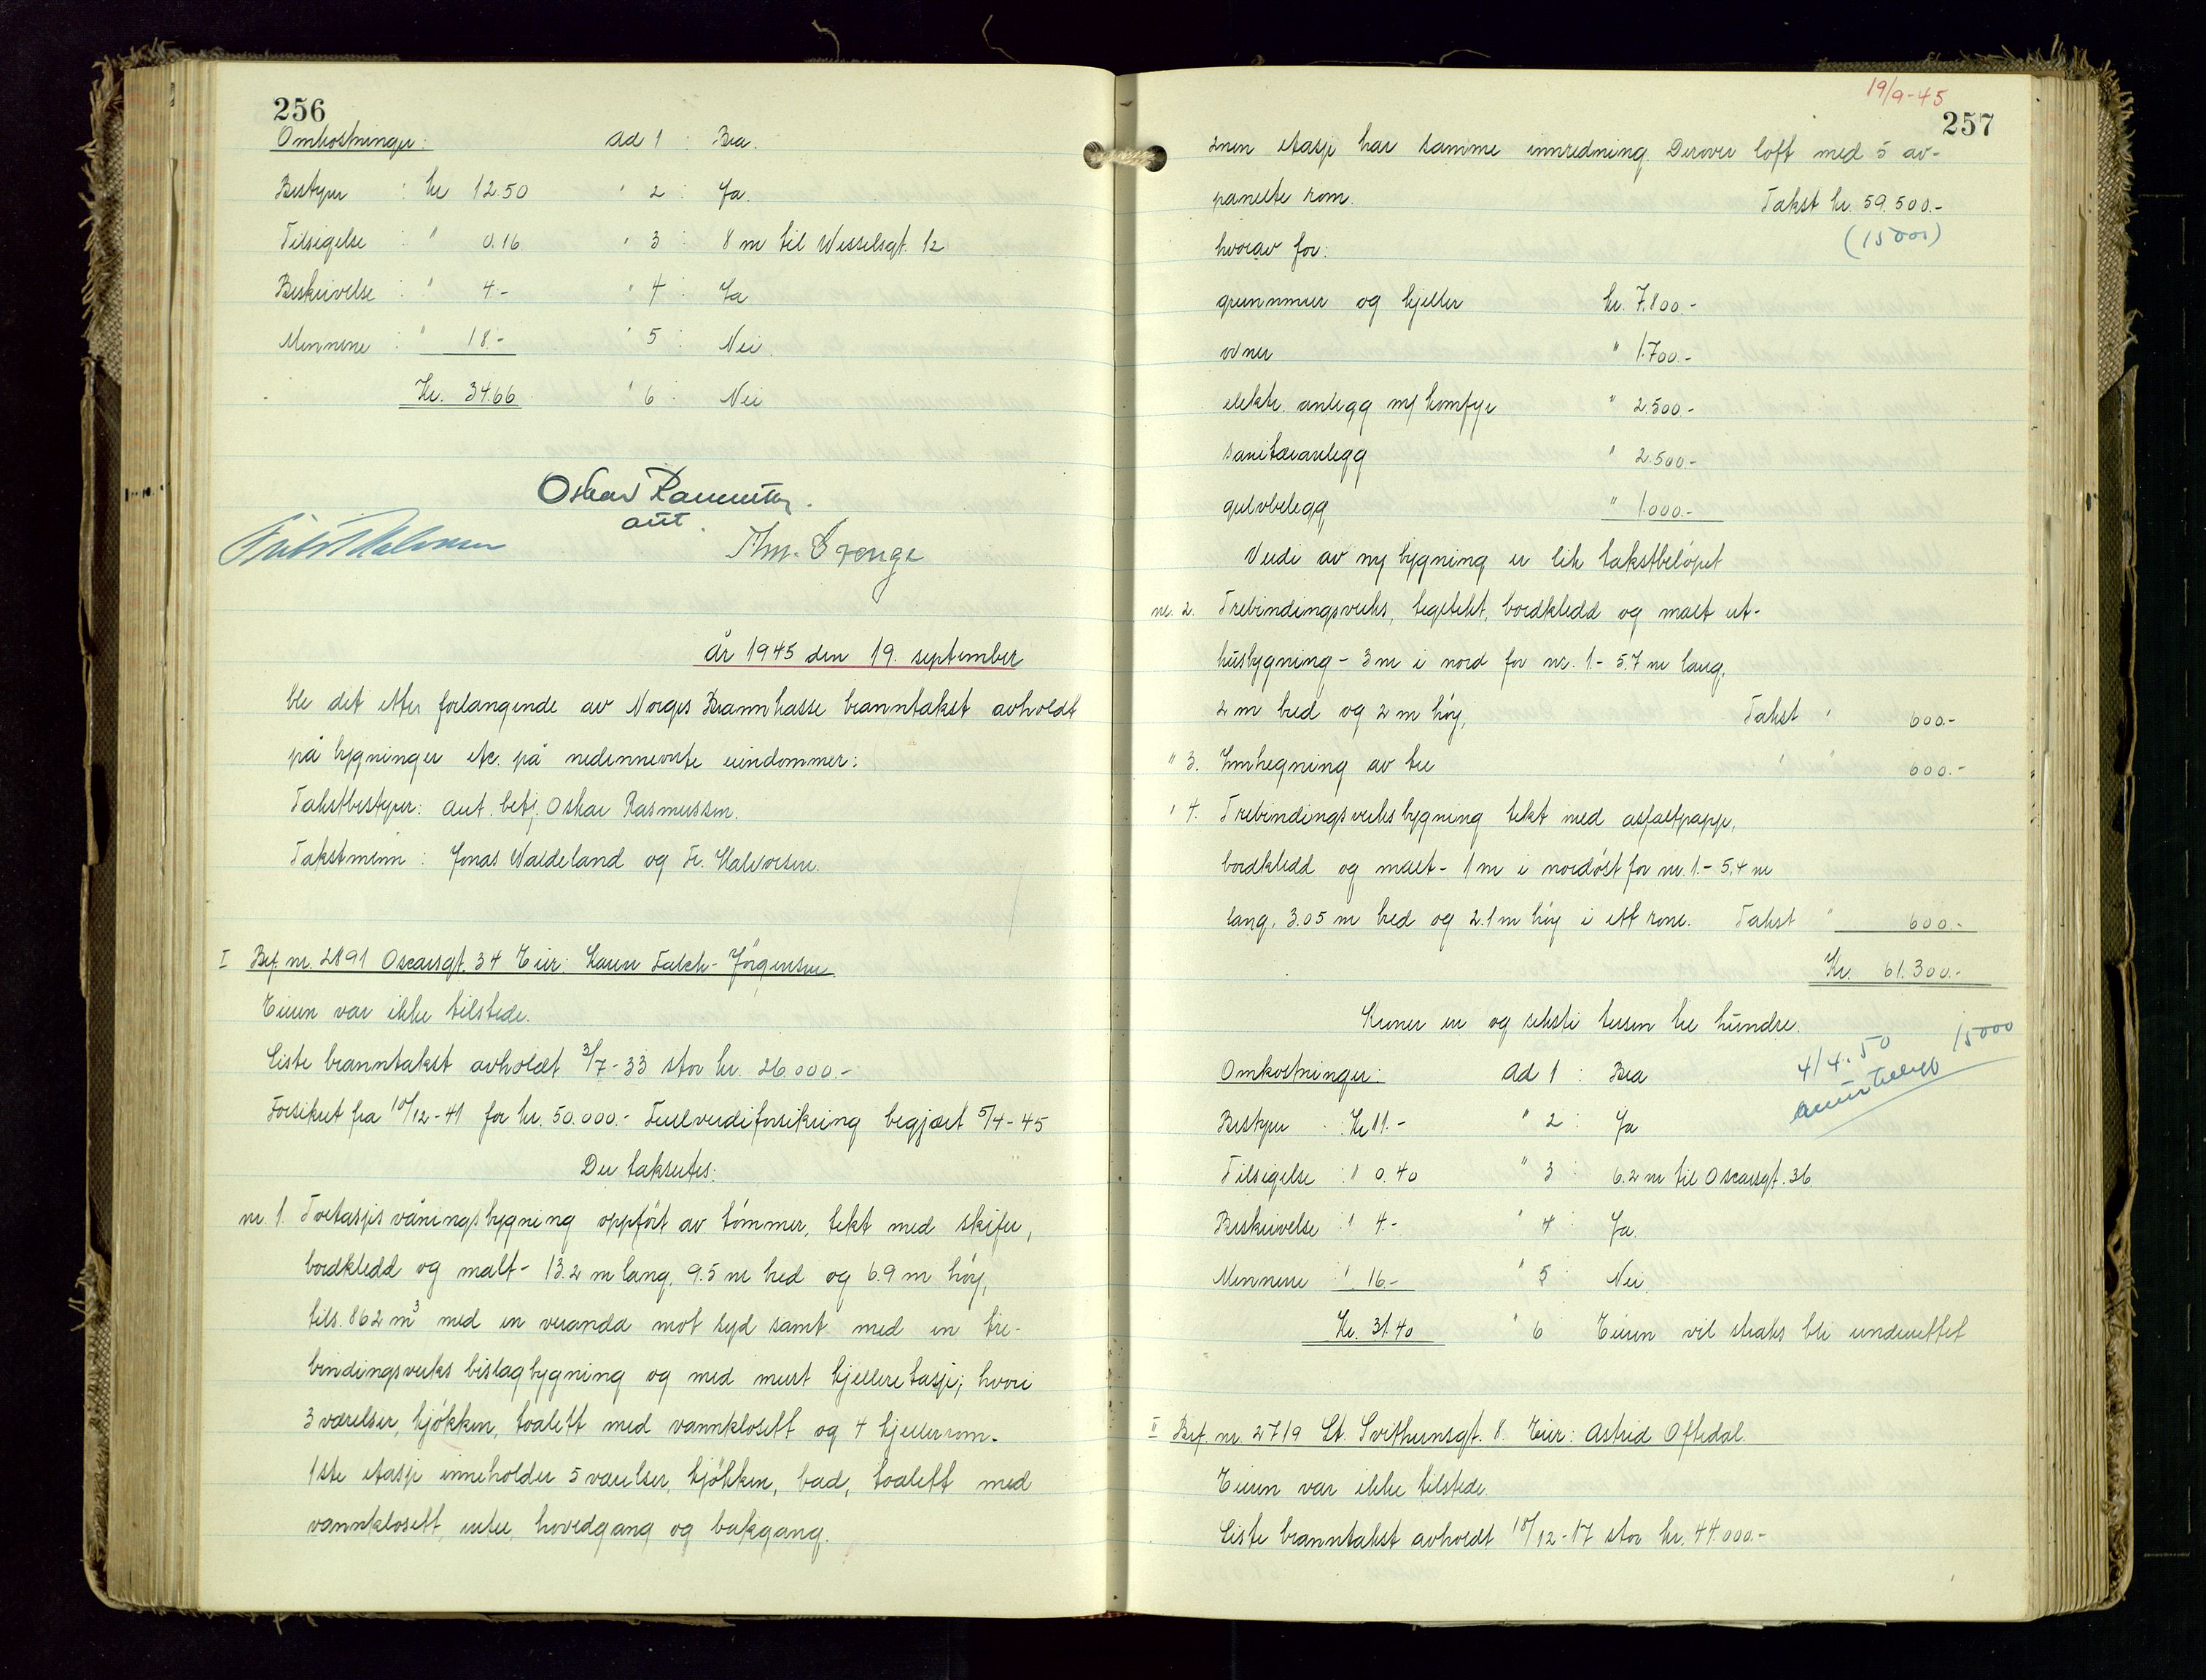 256
Omkostninger: ad 1 : Bra.
Bestyrer : kr 12.50 " 2 : Ja.
Tilsigelse : " 0.16 " 3 : 8 m til Wesselsgt. 12
Beskrivelse : " 4.- " 4 : Ja
Mennene : " 18.- " 5 : Nei.
Kr. 34.66 " 6 : Nei
Oskar Rasmussen.
aut.
Thv. Grenge
År 1945 den 19. september
ble det etter forlangende av Norges Brannkasse branntakst avholdt
på bygninger etc. på nedennevnte eiendommer:
Takstbestyrer: aut. betj. Oskar Rasmussen.
Takstmenn : Jonas Waldeland og Fr. Halvorsen.
I Brf. nr. 2891 Oscarsgt. 34 Eier: Karen Falck-Jörgensen
Eieren var ikke tilstede.
Siste branntakst avholdt 3/7-33 stor kr. 26.000.-
Forsikret fra 10/12-41 for kr. 50.000.- Fullverdiforsikring begjært 5/4-45
Der takseres:
nr. 1. Toetasjes våningsbygning oppfört av tömmer, tekt med skifer,
bordkledd og malt - 13.2 m lang, 9.5 m bred og 6.9 m höy,
tils. 862 m3 med en veranda mot syd samt med en tre-
bindingsverks bislagbygning og med murt kjelleretasje; hvori
3 værelser, kjökken, toalett med vannklosett og 4 kjellerrom.
1ste etasje inneholder 5 værelser, kjökken, bad, toalett med
vannklosett, entre, hovedgang og bakgang.
19/9-45
257
2nen etasje har samme innredning. Derover loft med 5 av-
panelte rom. Takst kr. 59.500.-
(15000)
hvorav for:
grunnmur og kjeller kr. 7.800.-
ovner " 1.700.-
elektr. anlegg m/ komfyr " 2.500.-
sanitæranlegg " 2.500.-
gulvbelegg " 1.000.-
Verdi av ny bygning er lik takstbelöpet
nr. 2. Trebindingsverks, tegltekt, bordkledd og malt ut-
husbygning - 3 m i nord for nr. 1. - 5.7 m lang,
2 m bred og 2 m höy, Takst " 600.-
" 3. Innhegning av tre " " 600.-
" 4. Trebindingsverksbygning tekt med asfaltpapp,
bordkledd og malt - 1 m i nordöst for nr. 1. - 5.4 m
lang, 3.05 m bred og 2.1 m höy i ett rom. Takst " 600.-
Kr. 61.300.-
Kroner en og seksti tusen tre hundre.
4/4.50
15000
Omkostninger: ad 1 : Bra
Bestyrer : Kr 11.- " 2 : Ja
Tilsigelse : " 0.40 " 3 : 6.2 m til Oscarsgt. 36.
Beskrivelse : " 4.- " 4 : Ja.
Mennene : " 16.- " 5 : Nei.
Kr. 31.40 " 6 Eieren vil straks bli underrettet
II Brf. nr. 2719 St. Svithunsgt. 8. Eier: Astrid Oftedal.
Eieren var ikke tilstede.
Siste branntakst avholdt 18/12-17 stor kr. 44.000.-